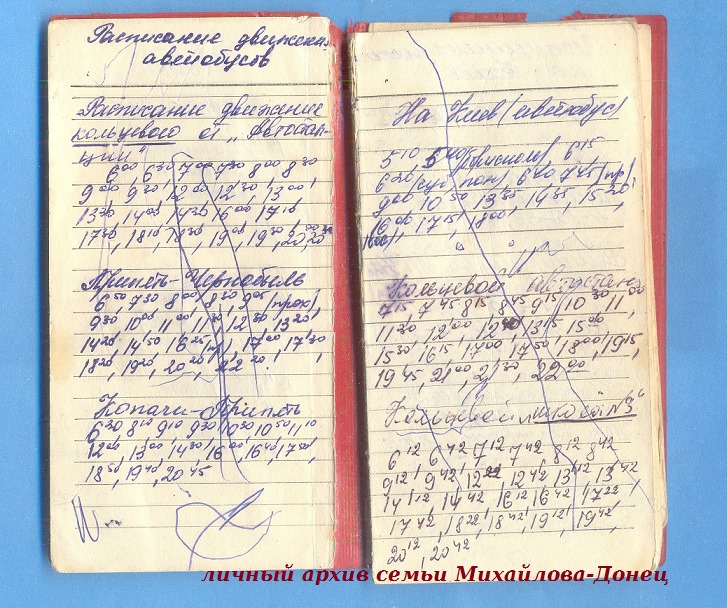 Расписание движения
автобусов
Расписание движение
кольцевого от „Автостан-
ции"
6⁰⁰ 6³⁰ 7⁰⁰ 7³⁰ 8⁰⁰ 8³⁰
9⁰⁰ 9³⁰, 12⁰⁰, 12³⁰, 13⁰⁰,
13³⁰, 14⁰⁰, 14³⁰, 16⁰⁰, 17¹⁰,
17³⁰, 18¹⁰, 18³⁰, 19⁰⁰, 19³⁰, 20⁰⁰, 20³⁰
Припять-Чернобыль
6⁵⁰ 7³⁰ 8⁰⁰ 8³⁰, 9⁰⁵ (прох)
9³⁰ 10⁰⁰ 11⁰⁰ 11³⁰, 12³⁰, 13²⁰,
14²⁰, 14⁵⁰, 16²⁵, 17⁰⁰, 17³⁰,
18²⁰, 19²⁰, 20²⁰, 22²⁰,
Копачи-Припять
6³⁰ 8¹⁰ 9¹⁰ 9³⁰ 10³⁰ 10⁵⁰ 11¹⁰
12⁰⁰, 13⁰⁰, 14³⁰, 16⁰⁰, 16⁴⁰, 17⁵⁰,
18⁵⁰, 19⁴⁰, 20⁴⁵
На Киев (автобус)
5¹⁰ 5⁴⁰ 6¹⁵
6²⁰ 6⁴⁰ 7⁴⁵ (пр)
9⁰⁰, 10⁵⁰, 13³⁵, 14³⁵, 15²⁰,
16⁰⁰, 17¹⁵, 18⁰⁰,
Кольцевой автостан
7¹⁵, 7⁴⁵ 8¹⁵, 8⁴⁵ 9¹⁵, 10³⁰ 11⁰⁰
11³⁰, 12⁰⁰, 13¹⁵, 15⁰⁰
15³⁰, 16¹⁵, 17⁰⁰, 17⁵⁰, 18⁰⁰, 19¹⁵,
19⁴⁵, 21⁰⁰, 21³⁰, 22⁰⁰
Кольцевой школы №3"
6¹² 6⁴² 7¹² 7⁴² 8¹² 8⁴²
9¹², 9⁴², 12²², 12⁴², 13¹², 13⁴²
14¹², 14⁴², 16¹², 16⁴², 17²²,
17⁴², 18²², 18⁴², 19¹², 19⁴²,
20¹², 20⁴²
личный архив семьи Михайлова-Донец